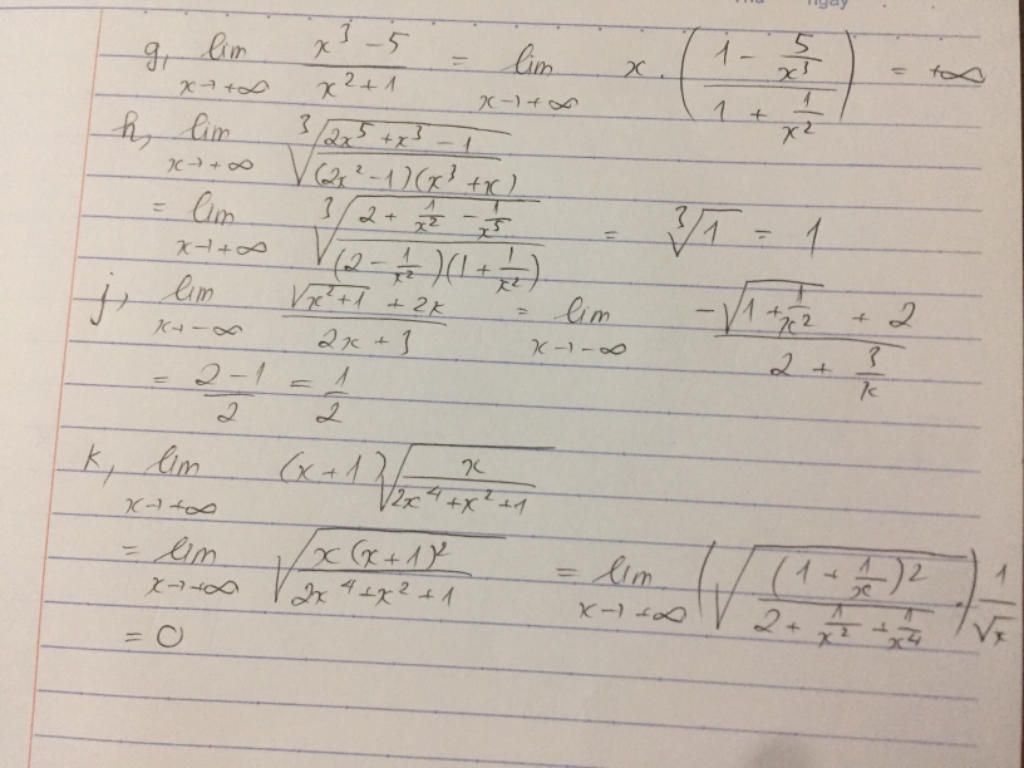 Thứ ngày
g, lim x→+∞ (x³ - 5)/(x² + 1) = lim x→+∞ x.((1 - 5/x³)/(1 + 1/x²)) = +∞
h, lim x→+∞ ∛((2x⁵ + x³ - 1)/((2x² - 1)(x³ + x)))
= lim x→+∞ ∛((2 + 1/x² - 1/x⁵)/((2 - 1/x²)(1 + 1/x²))) = ∛1 = 1
j, lim x→-∞ (√(x² + 1) + 2x)/(2x + 3) = lim x→-∞ (-√(1 + 1/x²) + 2)/(2 + 3/x)
= (2 - 1)/2 = 1/2
k, lim x→+∞ (x + 1)√(x/(2x⁴ + x² + 1))
= lim x→+∞ √(x(x + 1)²/(2x⁴ + x² + 1)) = lim x→+∞ (√((1 + 1/x)²/(2 + 1/x² + 1/x⁴))).1/√x
= 0